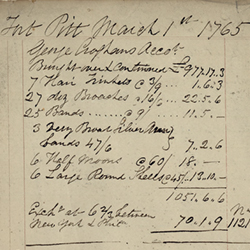 Fort Pitt March 1st 1765
George Croghans Accot
Brought over & Continued £977.17.3
7 Hair Trinkets @ 3/9 1.6.3
27 doz Broaches @ 16/6 22.5.6
25 Bands @ 9/ 11.5.-
3 very Broad Silver
Bands 47/6 7.2.6
6 Half Moons @ 60/ 18.-
6 Large Round Shells @ 45/ 13.10.-
1051.6.6
Exche at 6 2/3 between
New York & 70.1.9 1121